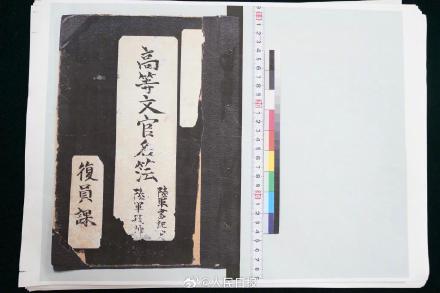 高等文官名簿
陸軍書記官
陸軍技師
復員課
@人民日报